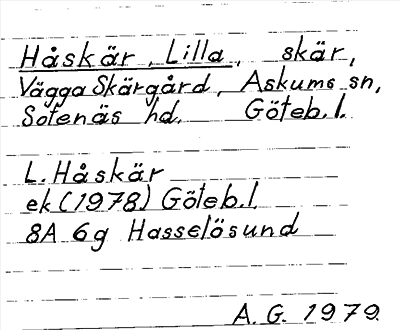 Håskär, Lilla, skär,
Vägga Skärgård, Askums sn,
Sotenäs hd. Göteb. l.
L. Håskär
ek (1978) Göteb. l.
8A 6g Hasselösund
A. G. 1979.